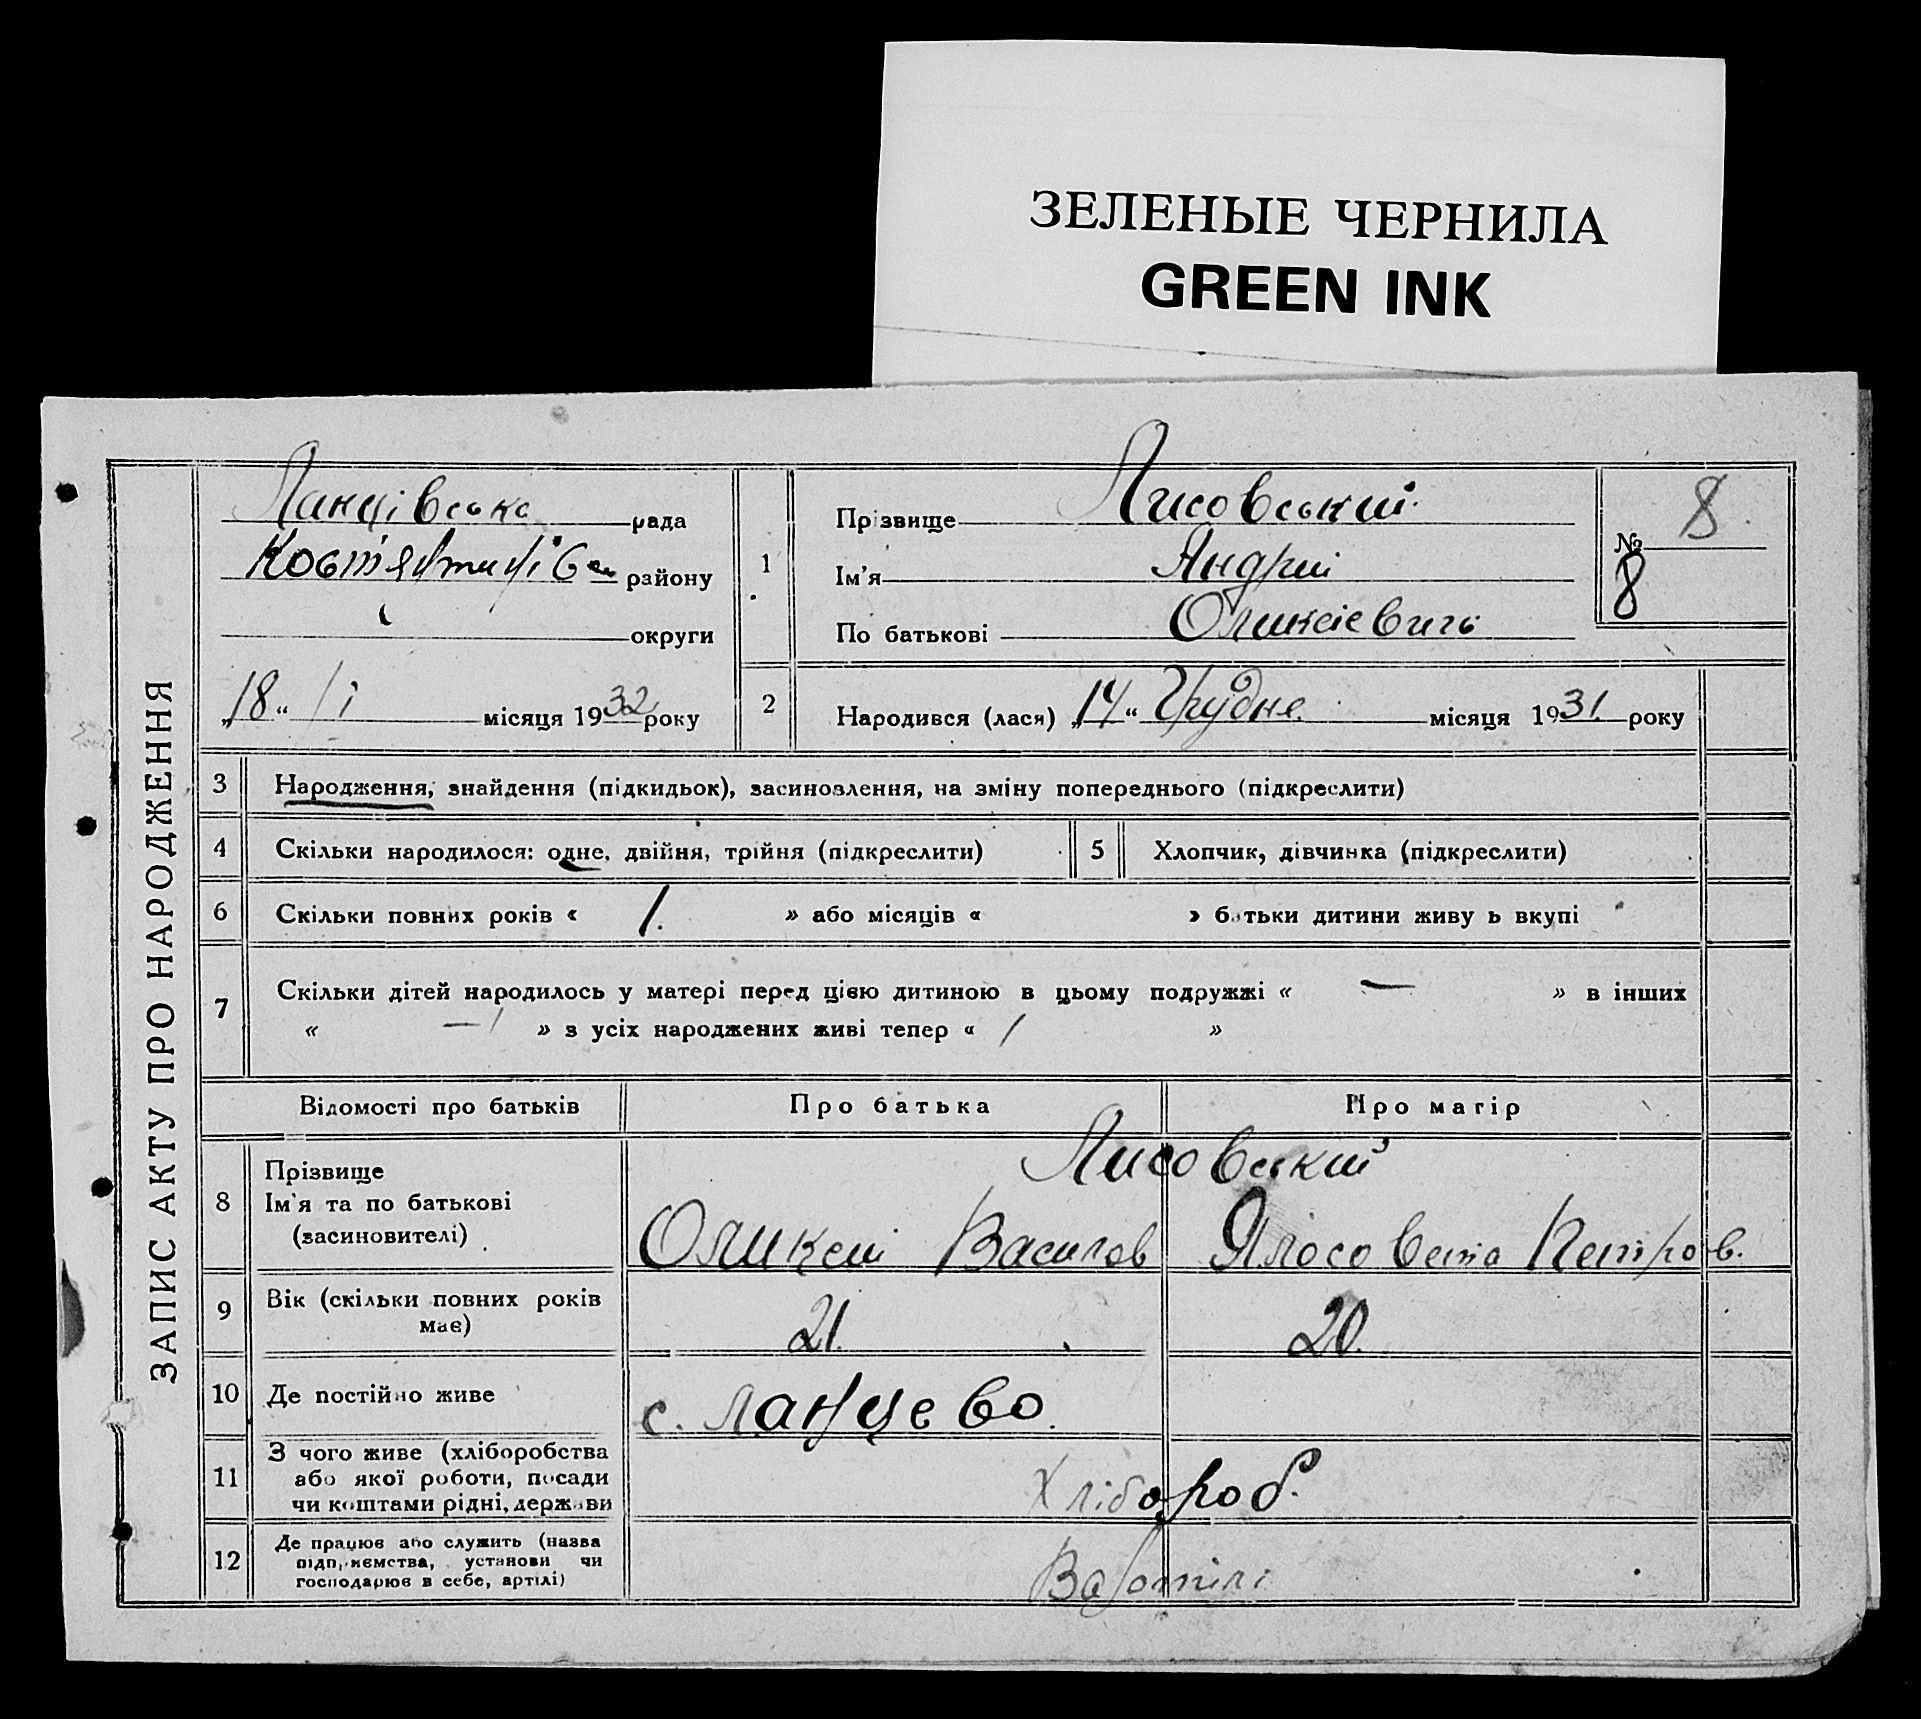 ЗЕЛЕНЫЕ ЧЕРНИЛА
GREEN INK
ЗАПИС АКТУ ПРО НАРОДЖЕННЯ
Ланцівська рада
району
округи
„18“ /І місяця 1932 року
1
Прізвище Лисовський
Ім'я Яндрий
По батькові Оликсієвичь
№ 8
8
2
Народився (лася) „14“ Грудне. місяця 1931. року
3 Народження, знайдення (підкидьок), засиновлення, на зміну попереднього (підкреслити)
4 Скільки народилося: одне, двійня, трійня (підкреслити)
5 Хлопчик, дівчинка (підкреслити)
6 Скільки повних років « 1. » або місяців « » батьки дитини живуть вкупі
7 Скільки дітей народилось у матері перед цією дитиною в цьому подружжі « — » в інших
« — » з усіх народжених живі тепер « 1 »
Відомості про батьків Про батька Про матір
8 Прізвище Лисовський
Ім'я та по батькові
(засиновителі) Оликсій Васильов Ялосовета Петров.
9 Вік (скільки повних років
має) 21. 20.
10 Де постійно живе с. Ланцево.
11 З чого живе (хліборобства
або якої роботи, посади
чи коштами рідні, держави Хлібороб.
12 Де працює або служить (назва
підприємства, установи чи
господарює в себе, артілі)